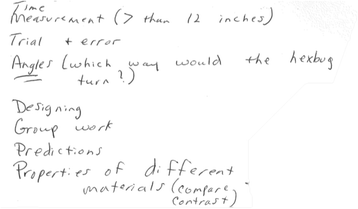 Time
Measurement (> than 12 inches)
Trial + error
Angles (which way would the hexbug
turn?)
Designing
Group work
Predictions
Properties of different
materials (compare
contrast)